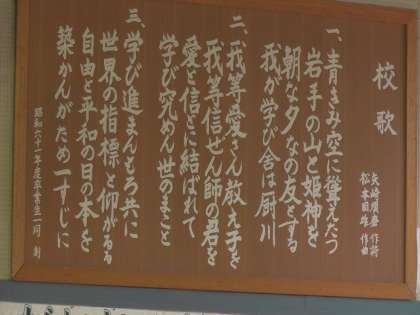 校歌
矢崎順磨 作詞
松本田雄 作曲
一、青きみ空に聳えたつ
岩手の山と姫神を
朝な夕なの友とする
我が学び舎は厨川
二、我等愛さん教え子を
我等信ぜん師の君を
愛と信とに結ばれて
学び究めん世のまこと
三、学び進まんもろ共に
世界の指標と仰がるる
自由と平和の日の本を
築かんがため一すじに
昭和六十一年度卒業生一同